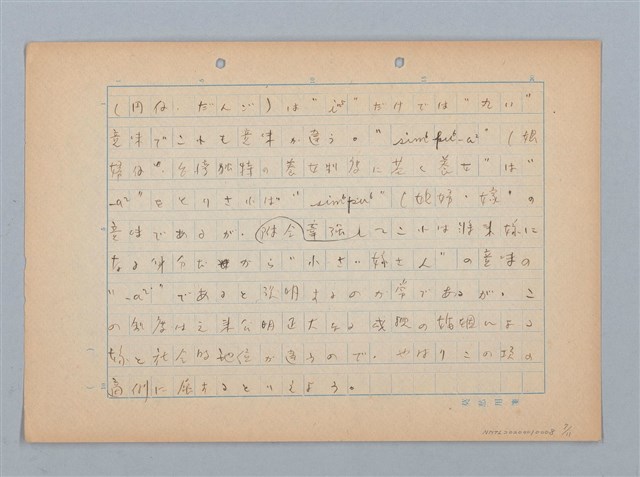 （円仔、だんご）は"iⁿ"だけでは"丸い"
意味でこれも意味が違う。"simpu-a"（媳
婦仔、台湾独特の養女制度に基く養女"は"
-a"をとりされば"simpu"（媳婦・嫁）の
意味であるが、附会牽強してこれは将来嫁に
なる身分だから"小さい嫁さん"の意味の
"-a"であると説明するのが常であるが、こ
の制度は元来公明正大なる 婚姻による
嫁と社会的地位が違うので、やはりこの項の
範例に属するといえよう。